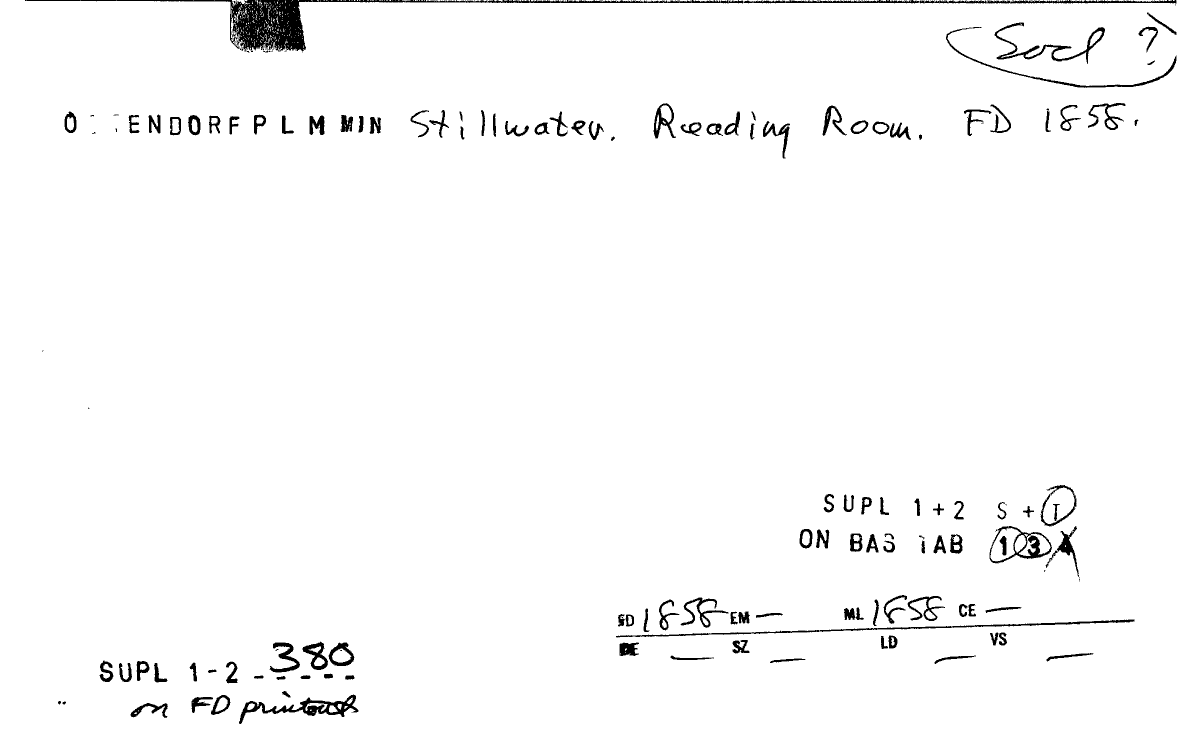 Socl ?
ENDORF P L M MIN Stillwater. Reading Room. FD 1858.
SUPL 1+2 S + I
ON BAS TAB 1 3 4
SD 1858 EM — ML 1858 CE —
DE — SZ — LD — VS —
SUPL 1-2 380
on FD printouts